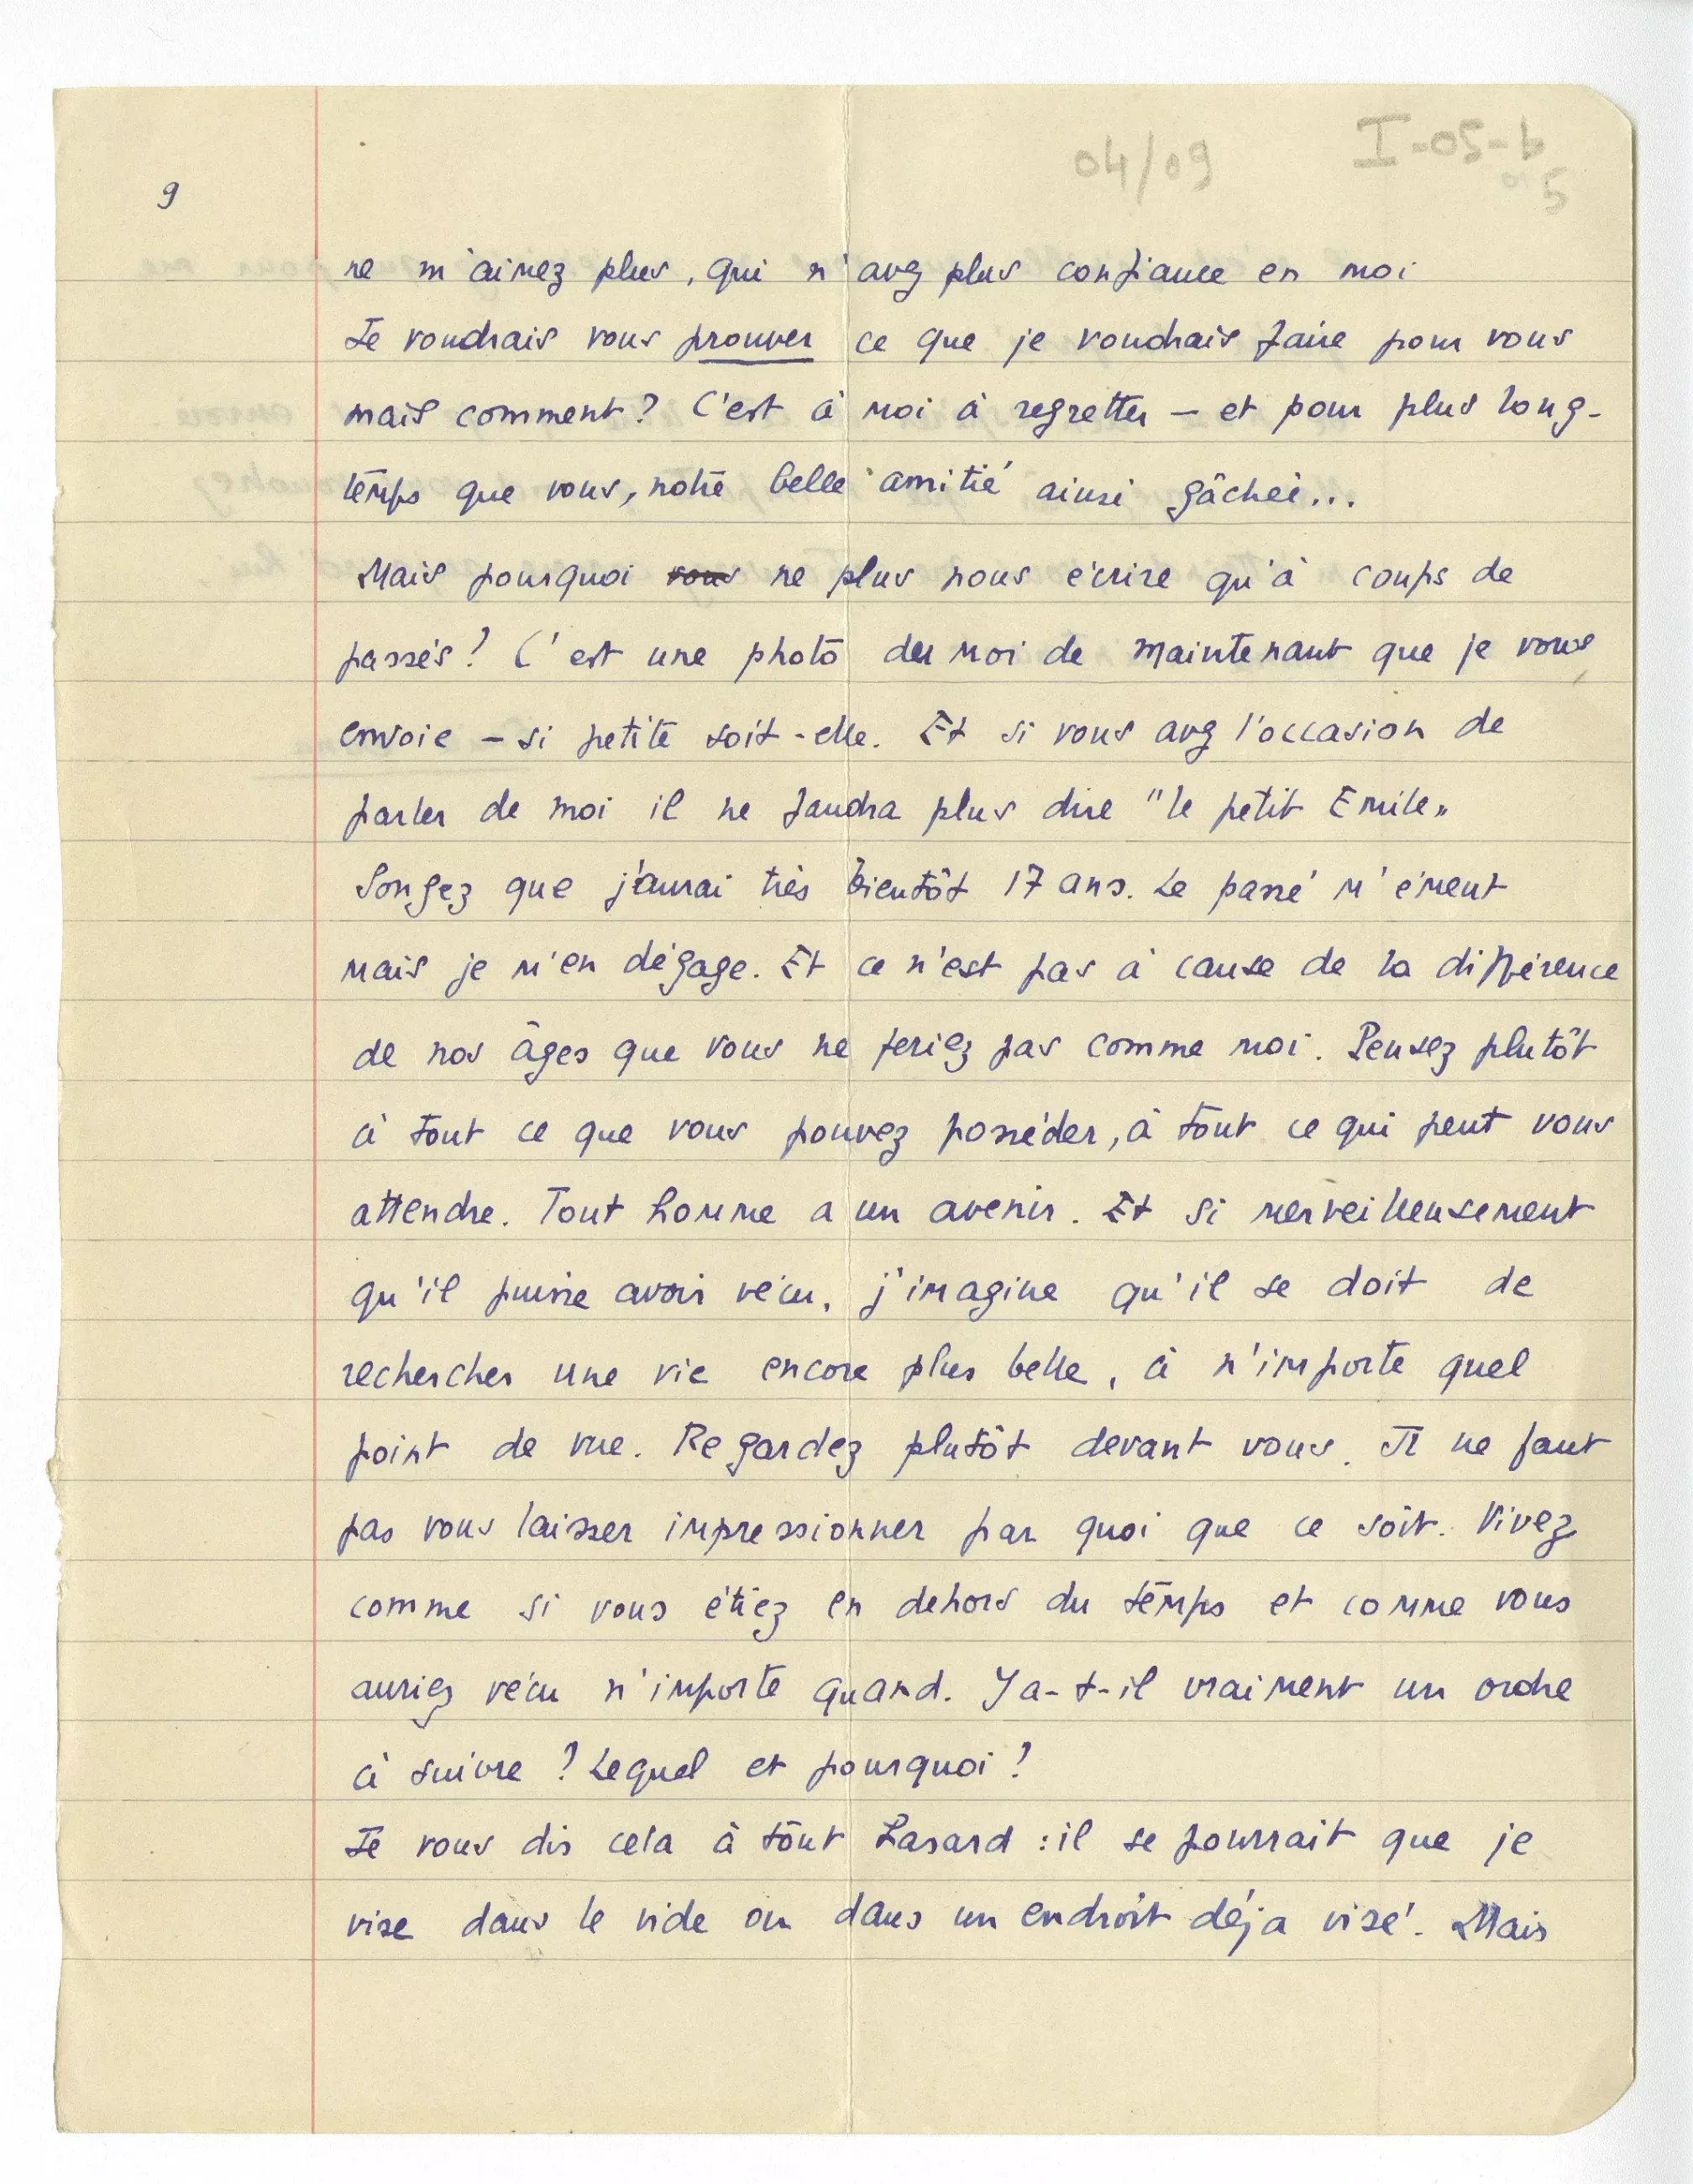 04/09
I-05-b
5
9
ne m'aimez plus, qui n'avez plus confiance en moi
Je voudrais vous prouver ce que je voudrais faire pour vous
mais comment? C'est à moi à regretter — et pour plus long-
temps que vous, notre belle amitié ainsi gâchée...
Mais pourquoi vous ne plus nous écrire qu'à coups de
passés? C'est une photo du moi de maintenant que je vous
envoie — si petite soit-elle. Et si vous avez l'occasion de
parler de moi il ne faudra plus dire "le petit Emile"
Songez que j'aurai très bientôt 17 ans. Le passé m'émeut
mais je m'en dégage. Et ce n'est pas à cause de la différence
de nos âges que vous ne feriez pas comme moi. Pensez plutôt
à tout ce que vous pouvez posséder, à tout ce qui peut vous
attendre. Tout homme a un avenir. Et si merveilleusement
qu'il puisse avoir vécu, j'imagine qu'il se doit de
rechercher une vie encore plus belle, à n'importe quel
point de vue. Regardez plutôt devant vous. Il ne faut
pas vous laisser impressionner par quoi que ce soit. Vivez
comme si vous étiez en dehors du temps et comme vous
auriez vécu n'importe quand. Y a-t-il vraiment un ordre
à suivre? Lequel et pourquoi?
Je vous dis cela à tout hasard : il se pourrait que je
vise dans le vide ou dans un endroit déja visé. Mais